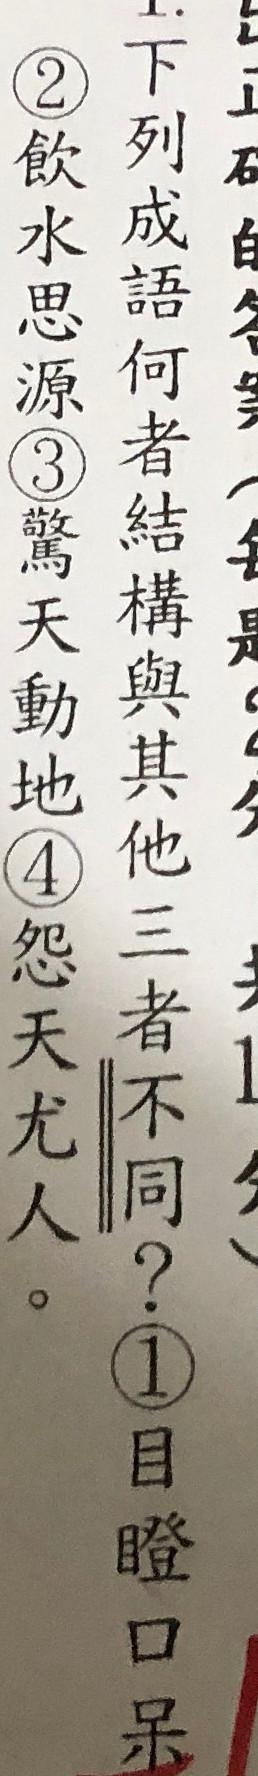 正確的答案（每題2分 共1 分）
1.下列成語何者結構與其他三者不同？①目瞪口呆
②飲水思源③驚天動地④怨天尤人。